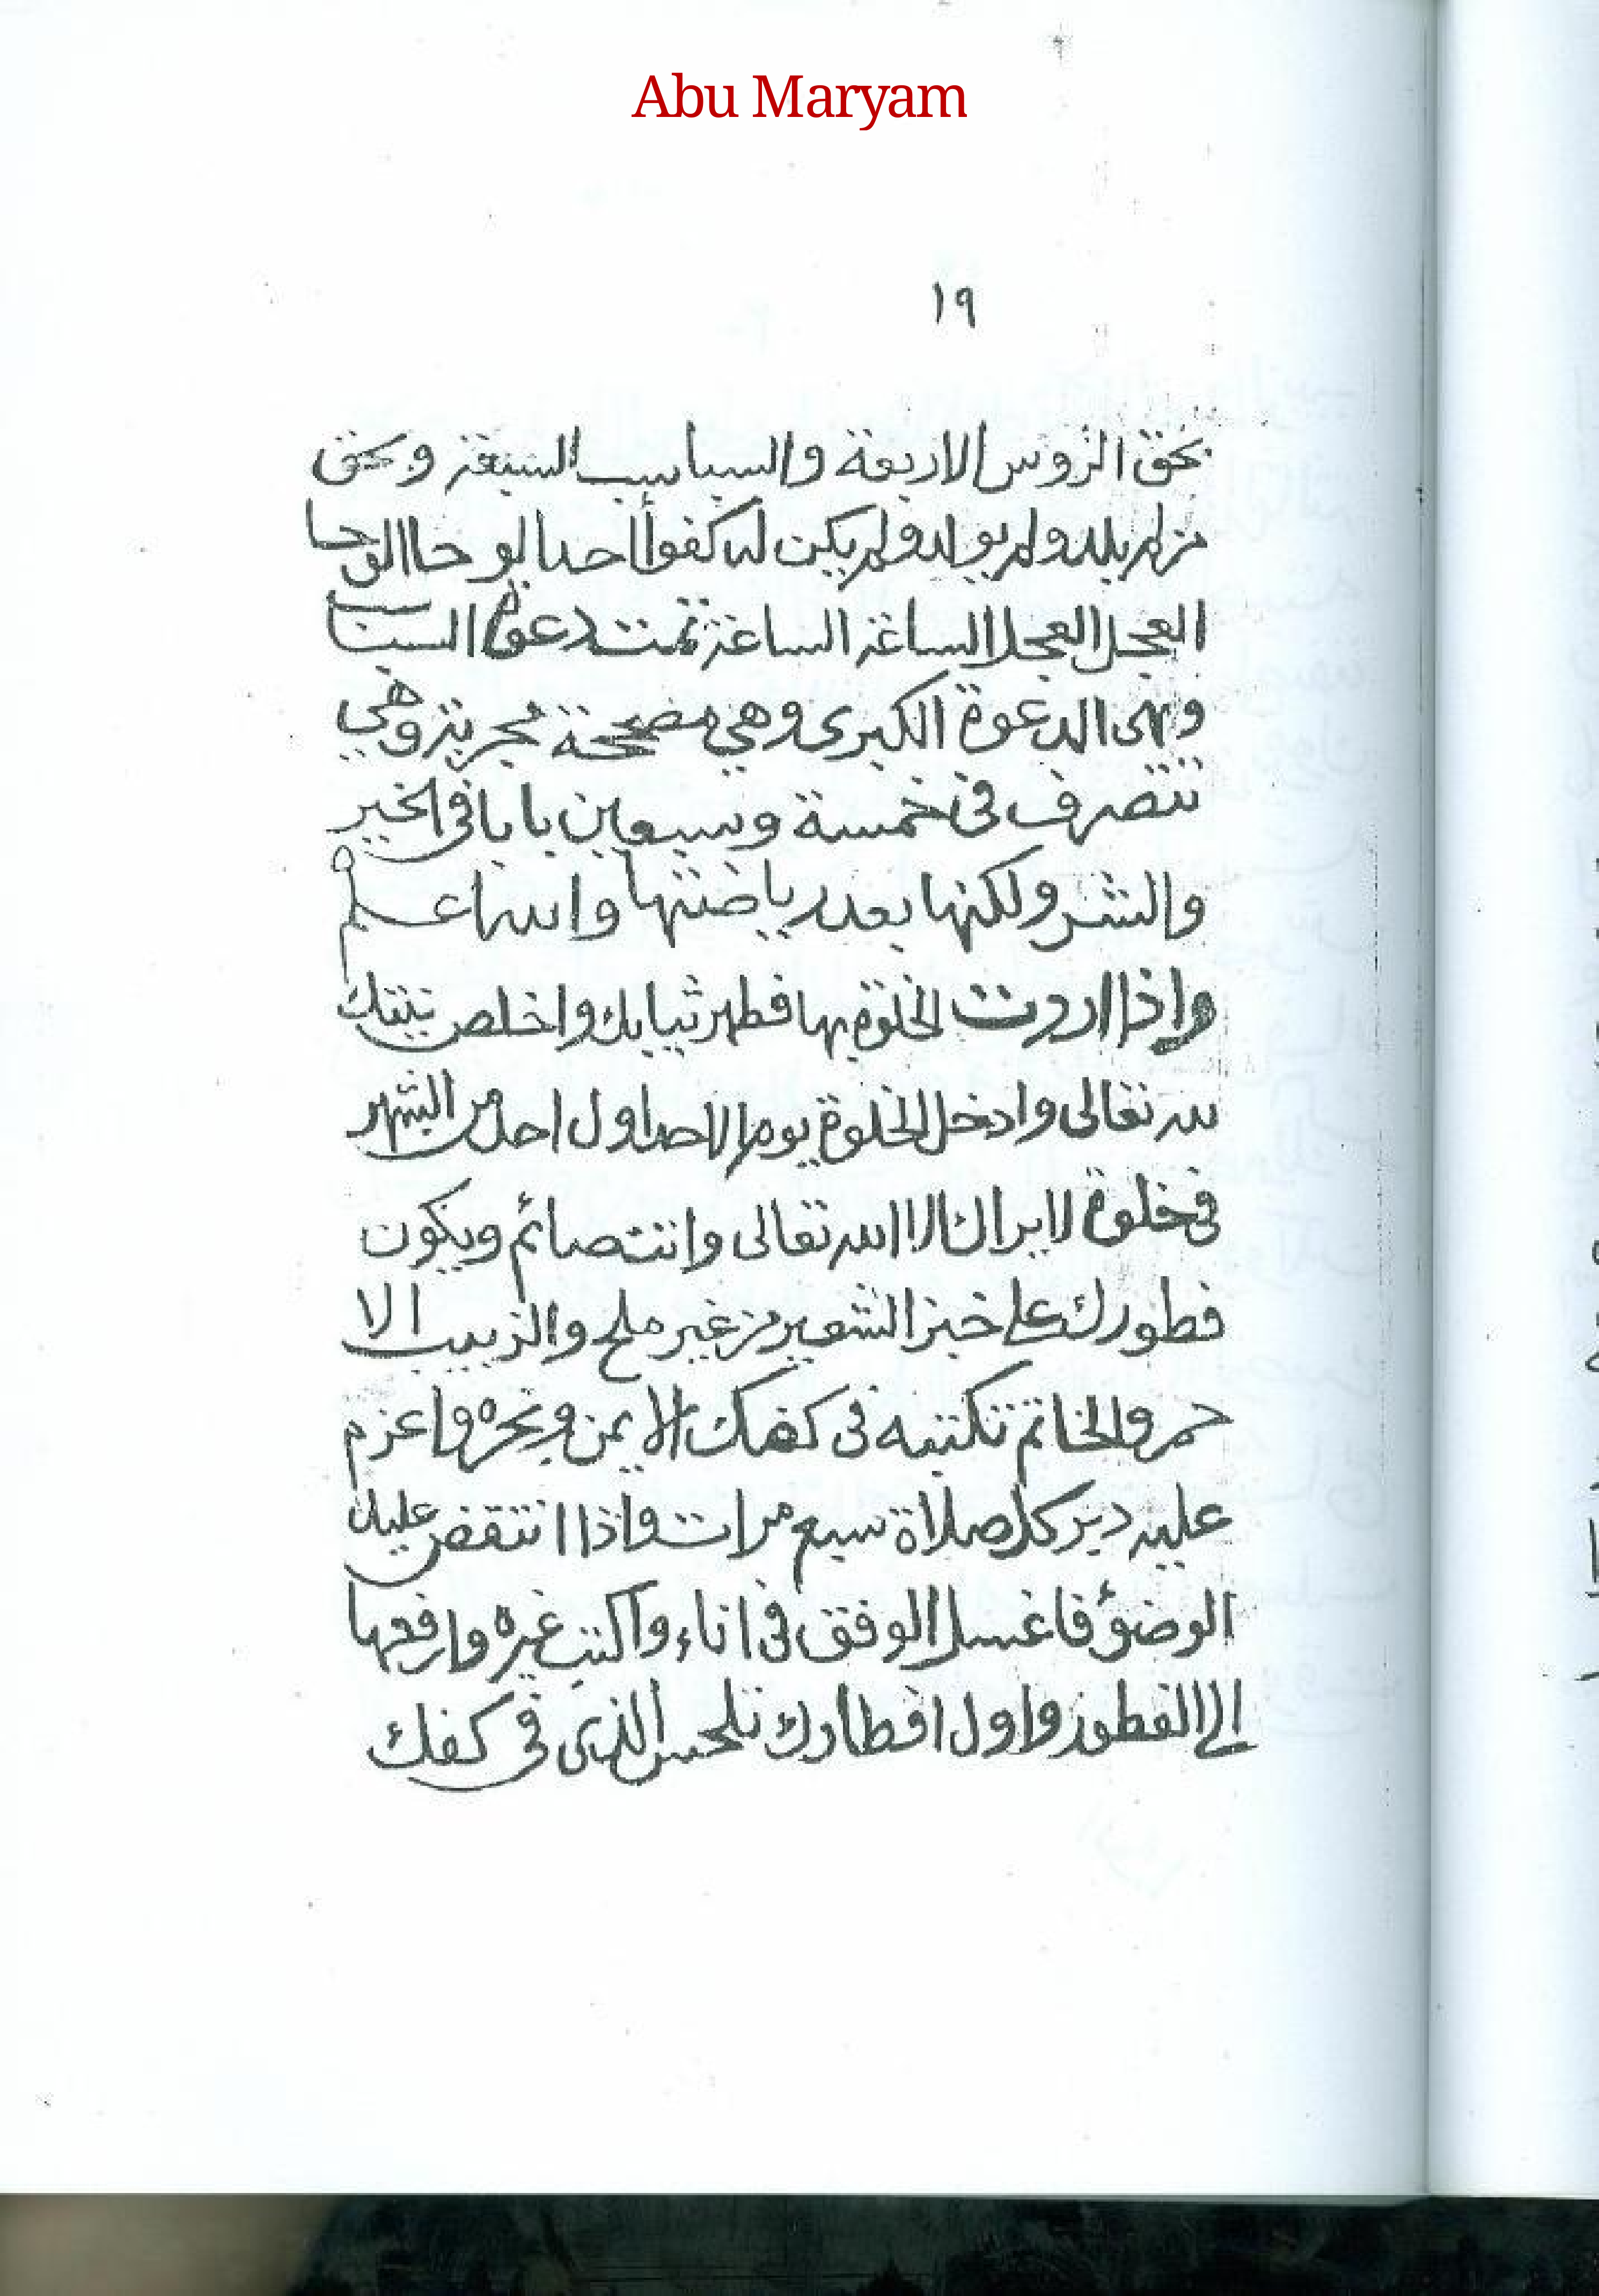 Abu Maryam
١٩
بحق الرؤس الاربعة والسباسب السبعة وبحق
من لم يلد ولم يولد ولم يكن له كفوا احد الوحا الوحا
العجل العجل الساعة الساعة تمت دعوة
وهى الدعوة الكبرى وهي مصححة مجربة وهي
تتصرف في خمسة وسبعين بابا في الخير
والشر ولكنها بعد رياضتها والله اعلم
واذا اردت الخلوة بها فطهر ثيابك واخلص نيتك
لله تعالى وادخل الخلوة يوم الاحد اول احد من الشهر
في خلوة لا يراك الا الله تعالى وانت صائم ويكون
فطورك على خبز الشعير من غير ملح والزبيب الا
حمر والخاتم تكتبه في كفك الايمن وبخره واعزم
عليه دبر كل صلاة سبع مرات واذا انتقض عليك
الوضؤ فاغسل الوفق في اناء واكتب غيره وارفعها
الى الفطور واول افطارك تلحس الذى في كفك